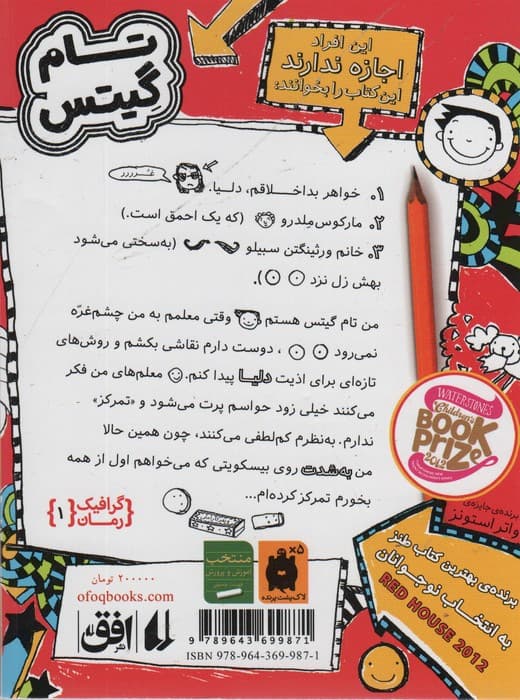 تام
گیتس
این افراد
اجازه ندارند
این کتاب را بخوانند:
غـررررر
۱. خواهر بداخلاقم، دلیا.
۲. مارکوس‌مِلدرو (که یک احمق است.)
۳. خانم ورثینگتن سبیلو (به‌سختی می‌شود
بهش زل نزد).
من تام گیتس هستم وقتی معلمم به من چشم‌غرّه
نمی‌رود، دوست دارم نقاشی بکشم و روش‌های
تازه‌ای برای اذیت دلیا پیدا کنم. معلم‌های من فکر
می‌کنند خیلی زود حواسم پرت می‌شود و «تمرکز»
ندارم. به‌نظرم کم‌لطفی می‌کنند، چون همین حالا
من به‌شدت روی بیسکویتی که می‌خواهم اول از همه
بخورم تمرکز کرده‌ام...
WATERSTONES
Children's
BOOK
PRIZE
2012
برنده‌ی جایزه‌ی
واتر استونز
برنده‌ی بهترین کتاب طنز
به انتخاب نوجوانان
RED HOUSE 2012
گرافیک
رمان
{۱}
×۵
لاک‌پشت پرنده
منتخب
آموزش و پرورش
۲۰۰۰۰۰ تومان
ofoqbooks.com
نشر افق
9 789643 699871
ISBN 978-964-369-987-1